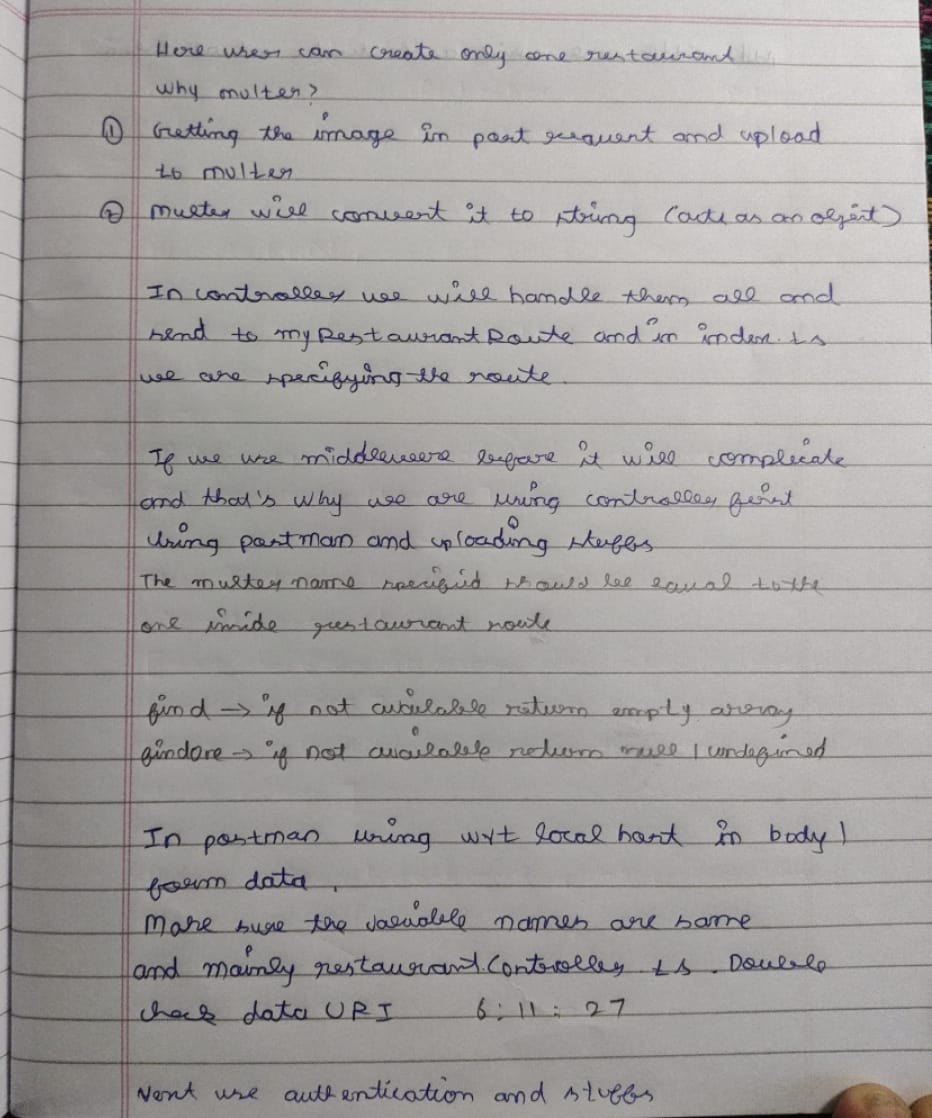 Here user can create only one restaurant
Why multer?
① Getting the image in post request and upload
to multer
② multer will convert it to string (acts as an object)
In controller we will handle them all and
send to myRestaurantRoute and in index.ts
we are specifying the route.
If we use middleware before it will complicate
and that's why we are using controller first
Using postman and uploading stuffs
The multer name specified should be equal to the
one inside restaurant route
find → if not available return empty array
findone → if not available return null / undefined
In postman using wrt local host in body /
form data.
Make sure the variable names are same
and mainly restaurant.Controller ts. Double
check data URI 6:11:27
Next use authentication and stuffs